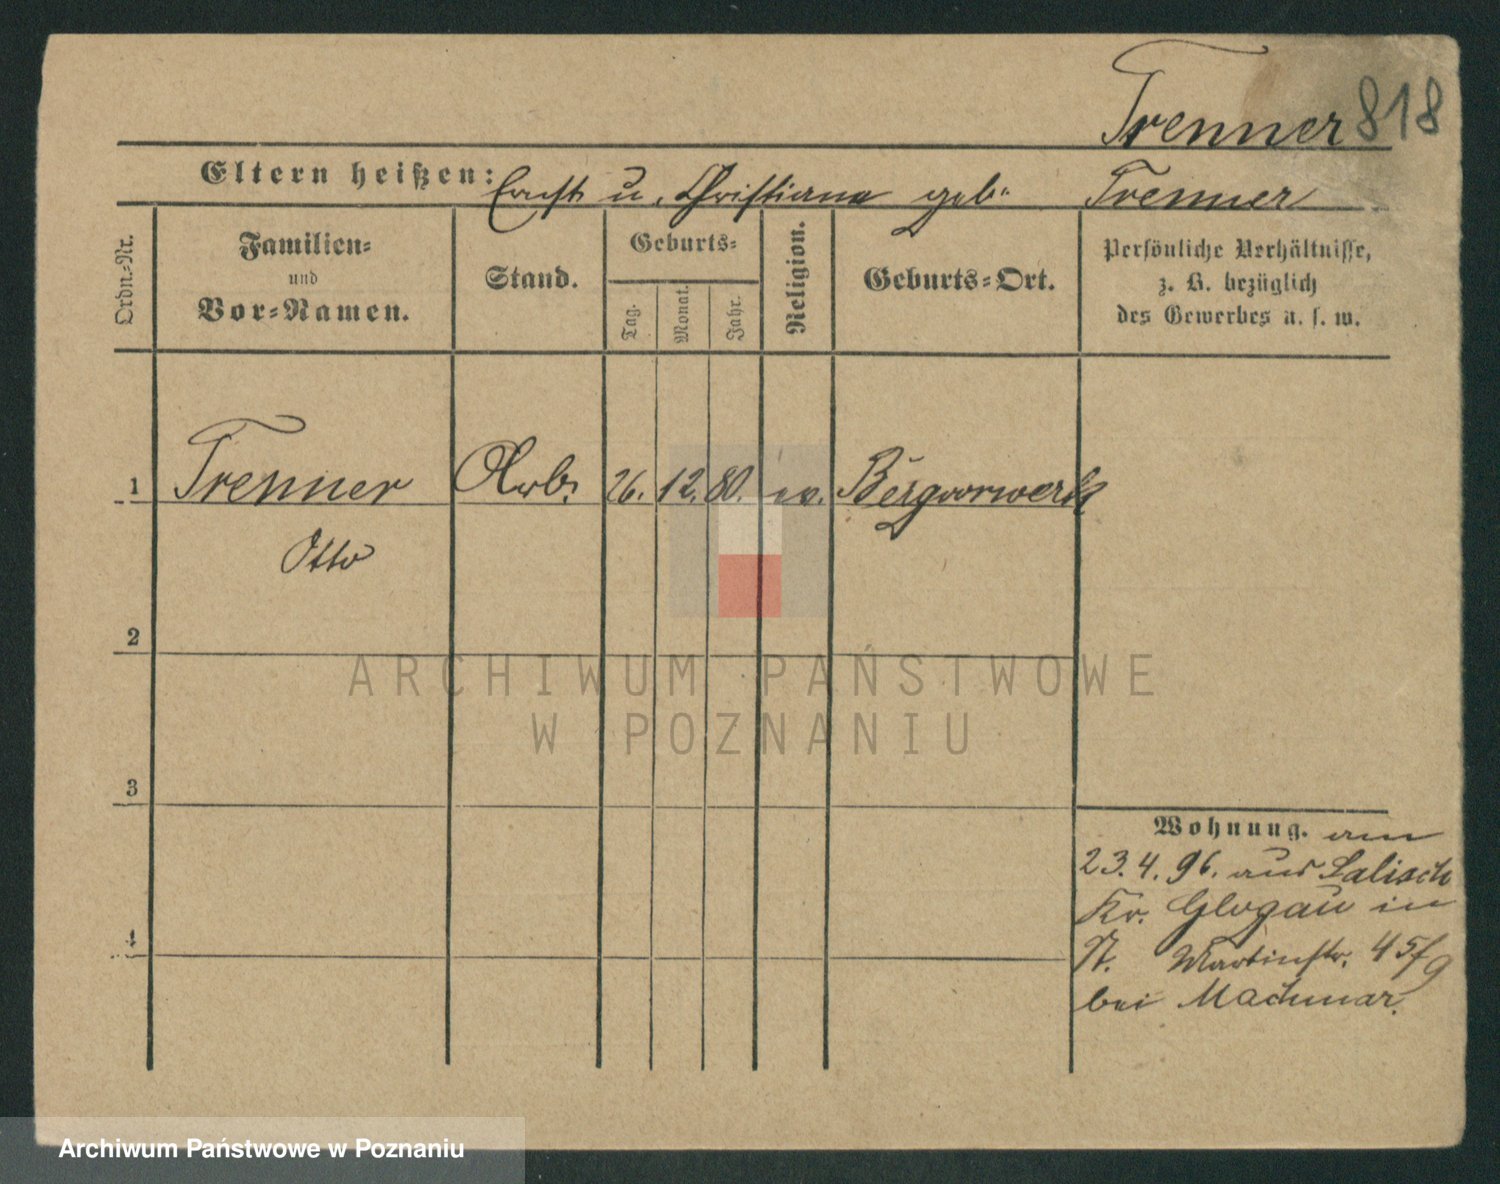 Trenner 818
Eltern heißen: Ernst u. Christiane geb. Trenner
Ordn.-Nr.
Familien-
und
Vor-Namen.
Stand.
Geburts-
Tag.
Monat.
Jahr.
Religion.
Geburts-Ort.
Persönliche Verhältnisse,
z. B. bezüglich
des Gewerbes u. s. w.
1 Trenner Arb. 26. 12. 80. ev. Bergvorwerk
Otto
2
3
4
Wohnung. am
23.4.96. aus Salisch
Kr. Glogau in
St. Martinstr. 45/9
bei Machmar.
ARCHIWUM PAŃSTWOWE
W POZNANIU
Archiwum Państwowe w Poznaniu